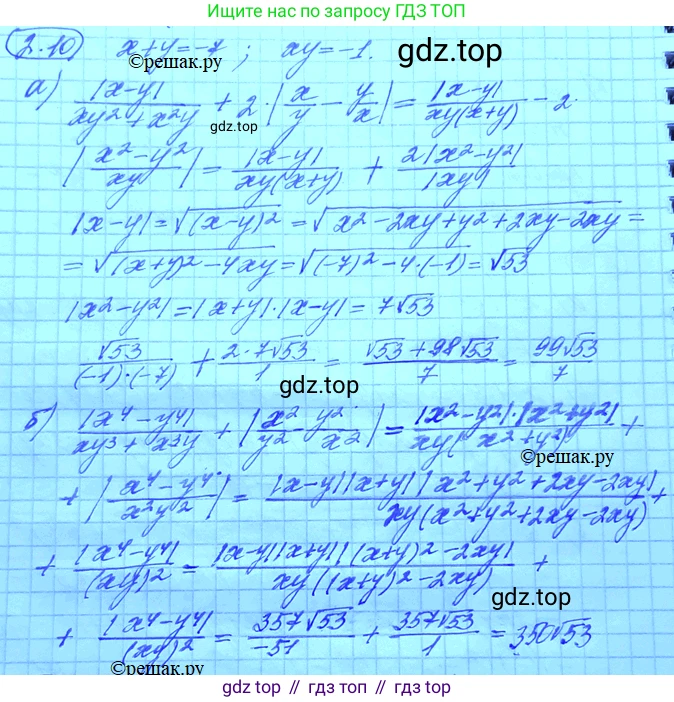 Ищите нас по запросу ГДЗ ТОП
2.10) x+y=-7; xy=-1.
©reшак.ру
gdz.top
а) |x-y|/(xy²+x²y) + 2·|x/y - y/x| = |x-y|/(xy(x+y)) - 2·
gdz.top
|(x²-y²)/(xy)| = |x-y|/(xy(x+y)) + 2|x²-y²|/|xy|
|x-y|=√((x-y)²) = √(x²-2xy+y²+2xy-2xy) =
= √((x+y)²-4xy) = √((-7)²-4·(-1)) = √53
|x²-y²| = |x+y|·|x-y| = 7√53
©reшак.ру
√53/((-1)·(-7)) + 2·7√53/1 = (√53+98√53)/7 = 99√53/7
gdz.top
б) |x⁴-y⁴|/(xy³+x³y) + |x²/y² - y²/x²| = |x²-y²|·|x²+y²|/(xy(x²+y²)) +
©reшак.ру
+ |(x⁴-y⁴)/(x²y²)| = |x-y||x+y||x²+y²+2xy-2xy|/(xy(x²+y²+2xy-2xy)) +
+ |x⁴-y⁴|/(xy)² = |x-y||x+y||(x+y)²-2xy|/(xy((x+y)²-2xy)) +
gdz.top
+ |x⁴-y⁴|/(xy)² = 357√53/-51 + 357√53/1 = 350√53
©reшак.ру
gdz.top // гдз топ // gdz.top